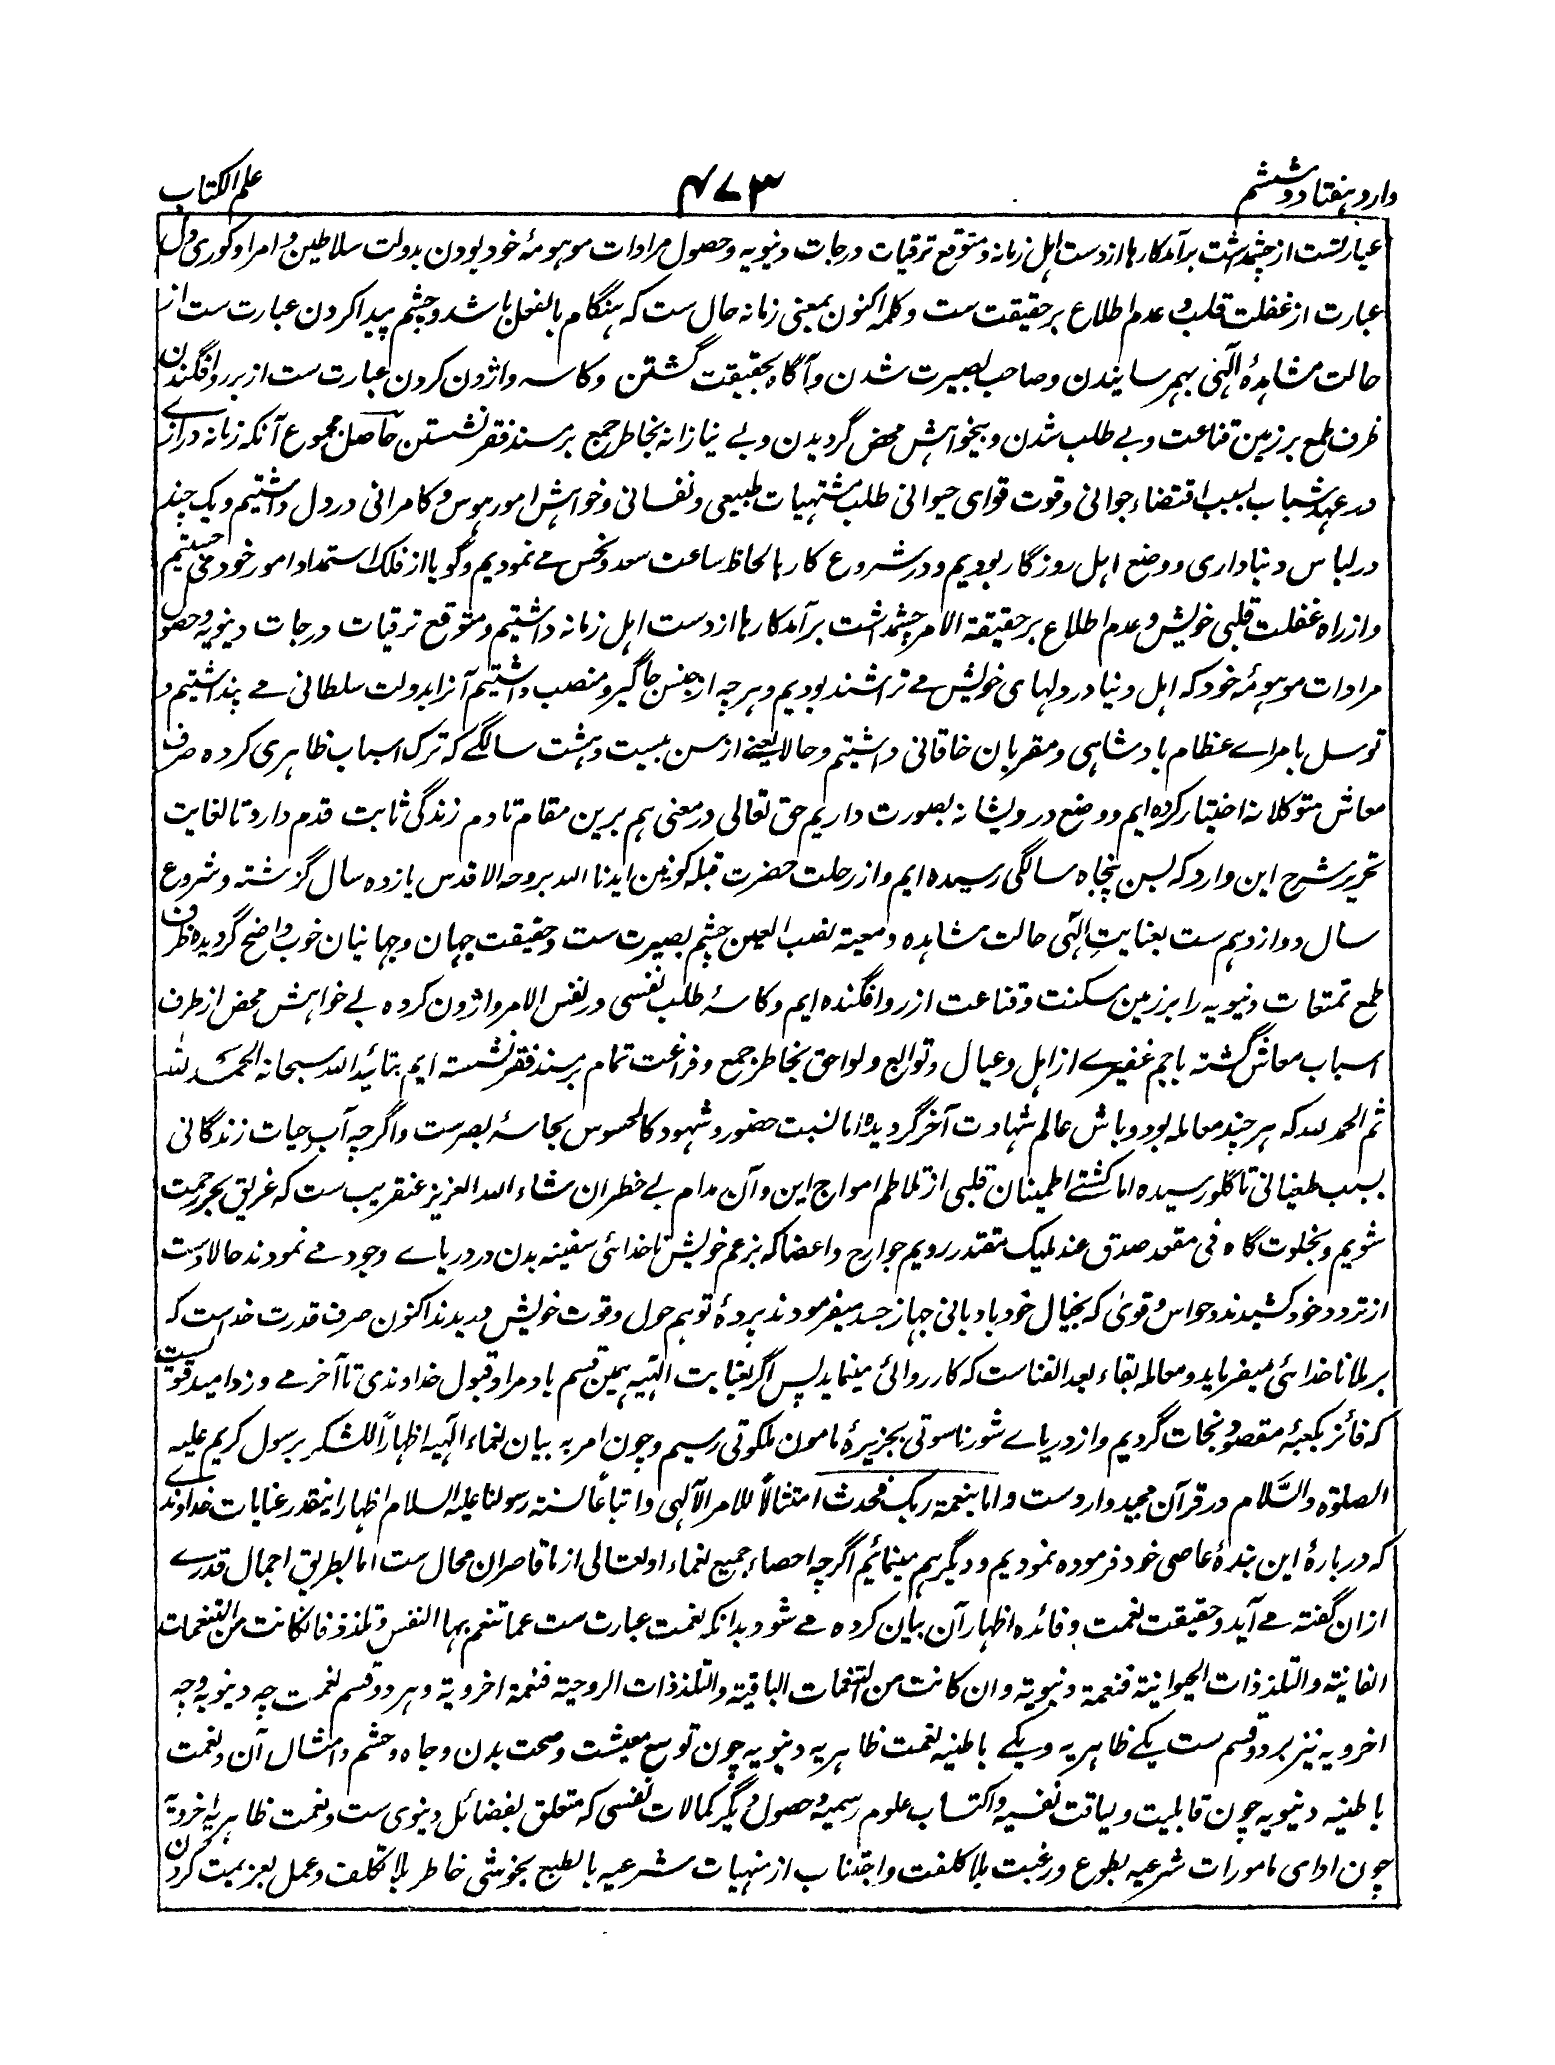 وارد هفتاد و ششم
۴۷۳
علم الکتاب
عبارتست از چشمداشت برآمد کارها از دست اهل زمانه و متوقع ترقیات درجات دنیویه و حصول مرادات موهومهٔ خود بودن بدولت سلاطین و امرا و کوری دل
عبارت از غفلت قلب و عدم اطلاع بر حقیقت ست و کلمهٔ اکنون بمعنی زمانه حال ست که هنگام بالفعل باشد و چشم پیدا کردن عبارت ست از
حالت مشاهدهٔ الٓهی بهم رسانیدن و صاحب بصیرت شدن و آگاه بحقیقت گشتن و کاسه واژون کردن عبارت ست از بر رو افگندن
ظرف طمع بر زمین قناعت و بے طلب شدن و بیخواهش محض گردیدن و بے نیازانه بخاطر جمع بر مسند فقر نشستن حاصل مجموع آنکه زمانه درازے
در عهد شباب بسبب اقتضاء جوانی و قوت قوای حیوانی طلب مشتهیات طبیعی و نفسانی و خواهش امور هوس و کامرانی در دل داشتیم و یک چند
در لباس دنیاداری و وضع اهل روزگار بودیم و در شروع کارها لحاظ ساعت سعد و نحس مے نمودیم و گویا از فلک استمداد امور خود می جستیم
و از راه غفلت قلبی خویش و عدم اطلاع بر حقیقة الامر چشمداشت برآمد کارها از دست اهل زمانه داشتیم و متوقع ترقیات درجات دینویه و حصول
مرادات موهومهٔ خود که اهل دنیا در دلهای خویش مے تراشند بودیم و هر چه از جنس جاگیر و منصب داشتیم آنرا بدولت سلطانی مے پنداشتیم و
توسل بامراے عظام بادشاهی و مقربان خاقانی داشتیم و حالا یعنے از سن بیست و هشت سالگے که ترک اسباب ظاهری کرده صرف
معاش متوکلانه اختیار کرده ایم و وضع درویشانه بصورت داریم حق تعالی در معنی هم برین مقام تا دم زندگی ثابت قدم دارد تا لغایت
تحریر شرح این وارد که بسن پنجاه سالگی رسیده ایم و از رحلت حضرت قبله کونین ایدنا الله بروحه الاقدس یازده سال گزشته و شروع
سال دوازدهم ست بعنایتِ الٓهی حالت مشاهده و معیة نصب العین چشم بصیرت ست و حقیقت جهان و جهانیان خوب واضح گردیده ظرف
طمع تمتعات دنیویه را بر زمین مسکنت و قناعت از رو افگنده ایم و کاسهٔ طلب نفسی در نفس الامر واژون کرده بے خواهش محض از طرف
اسباب معاش گشته با جم غفیرے از اهل و عیال و توابع و لواحق بخاطر جمع و فراغت تمام بر مسند فقر نشسته ایم بتائید الله سبحانه الحمد لله
ثم الحمد لله که هر چند معامله بود و باش عالم شهادت آخر گردیده اما نسبت حضور و شهود کالمحسوس بحاسهٔ بصر ست و اگرچه آب حیات زندگانی
بسبب طغیانی تا گلو رسیده اما کشتے اطمینان قلبی از تلاطم امواج این و آن مدام بے خطر ان شاء الله العزیز عنقریب ست که غریق بحر رحمت
شویم و بخلوت گاه فی مقعد صدق عند ملیک مقتدر رویم جوارح و اعضا که بزعم خویش ناخدائی سفینه بدن در دریاے وجود مے نمودند حالا دست
از تردد خود کشیدند و حواس و قویٰ که بخیال خود بادبانی جهاز جسد میفرمودند پردهٔ توهم حول و قوت خویش دریدند اکنون صرف قدرت خداست که
برملا ناخدائی میفرماید و معامله بقاء بعد الفناست که کارروائی مینماید پس اگر بعنایت الٓهیه بهمین قسم باد مراد قبول خداوندی تا آخر مے وزد امید قوی ست
که فائز بکعبهٔ مقصود و نجات گردیم و از دریاے شور ناسوتی بجزیرهٔ مامون ملکوتی رسیم و چون امر به بیان نعماء الٓهیه اظهاراً للشکر بر رسول کریم علیه
الصلوٰة والسَّلام در قرآن مجید وارد ست و اما بنعمة ربک فحدث امتثالاً للامر الآلهی و اتباعاً لسنة رسولنا علیه السلام اظهار اینقدر عنایات خداوندے
که دربارهٔ این بندهٔ عاصی خود فرموده نمودیم و دیگر هم مینمائیم اگرچه احصاء جمیع نعماء او تعالی از ما قاصران محال ست اما بطریق اجمال قدرے
ازان گفته مے آید و حقیقت نعمت و فائده اظهار آن بیان کرده مے شود بدانکه نعمت عبارت ست عما تنعم بها النفس و تلذذ فان کانت من التنعمات
الفانیة والتلذذات الحیوانیة فنعمة دنیویة و ان کانت من التنعمات الباقیة والتلذذات الروحیة فنعمة اخرویة و هر دو قسم نعمت چه دینویه و چه
اخرویه نیز بر دو قسم ست یکے ظاهریه و یکے باطنیه نعمت ظاهریه دنیویه چون توسع معیشت و صحت بدن و جاه و حشم و امثال آن و نعمت
باطنیه دنیویه چون قابلیت و لیاقت نفسیه و اکتساب علوم رسمیه و حصول دیگر کمالات نفسی که متعلق بفضائل دینوی ست و نعمت ظاهریه اخرویة
چون ادای مامورات شرعیه بطوع و رغبت بلا کلفت و اجتناب از منهیات شرعیه بالطبع بخوشی خاطر بلا تکلف و عمل بعزیمت کردن